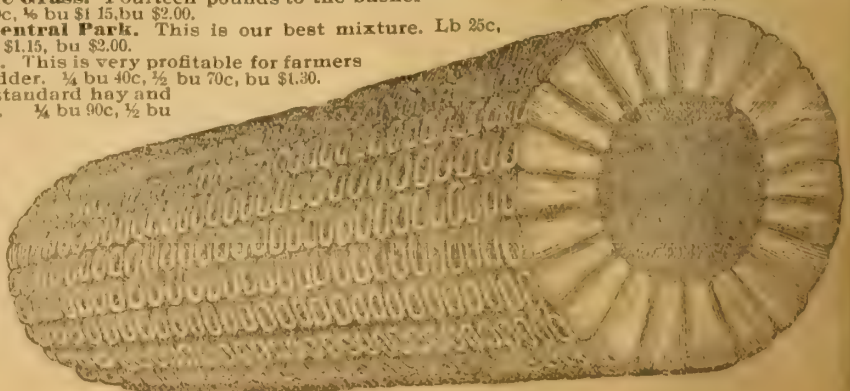 Grass. Fourteen pounds to the bushel
c, ½ bu $1 15,bu $2.00.
entral Park. This is our best mixture. Lb 25c,
$1.15, bu $2.00.
. This is very profitable for farmers
dder. ¼ bu 40c, ½ bu 70c, bu $1.30.
standard hay and
. ¼ bu 90c, ½ bu